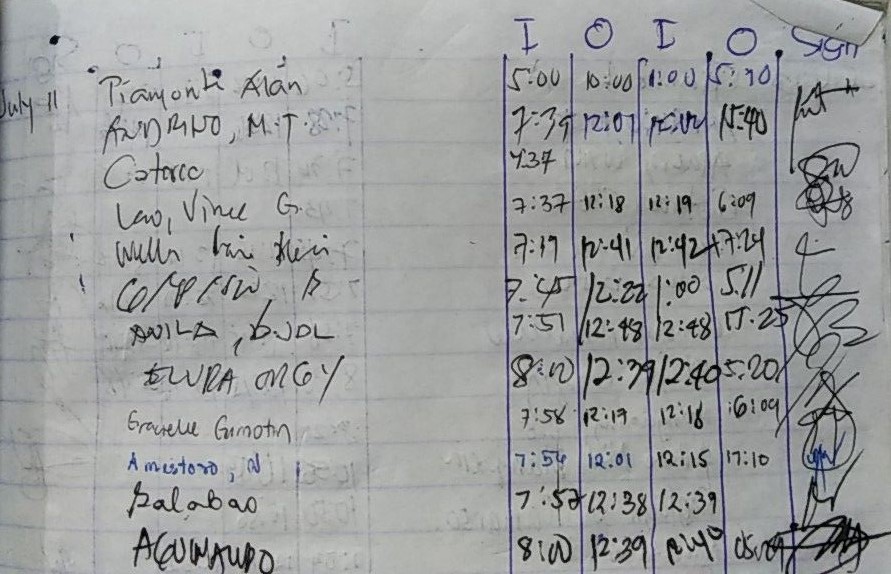 I O I O Sign
July 11 Piamonte Alan 5:00 10:00 1:00 5:30
ANDRINO, M.T. 7:35 12:01 12:02
7:37
Lao, Vince G. 7:37 12:18 12:19 6:09
7:39 12:41 12:42 17:24
7:45 12:22 1:00 5:11
AVILA, 7:51 12:48 12:48 17:25
8:00 12:39 12:40 5:20
Gracielle Gumotin 7:58 12:17 12:18 6:09
Amestoso, N 7:54 12:01 12:15 17:10
Balabao 7:57 12:38 12:39
AGUINALDO 8:00 12:39 12:40